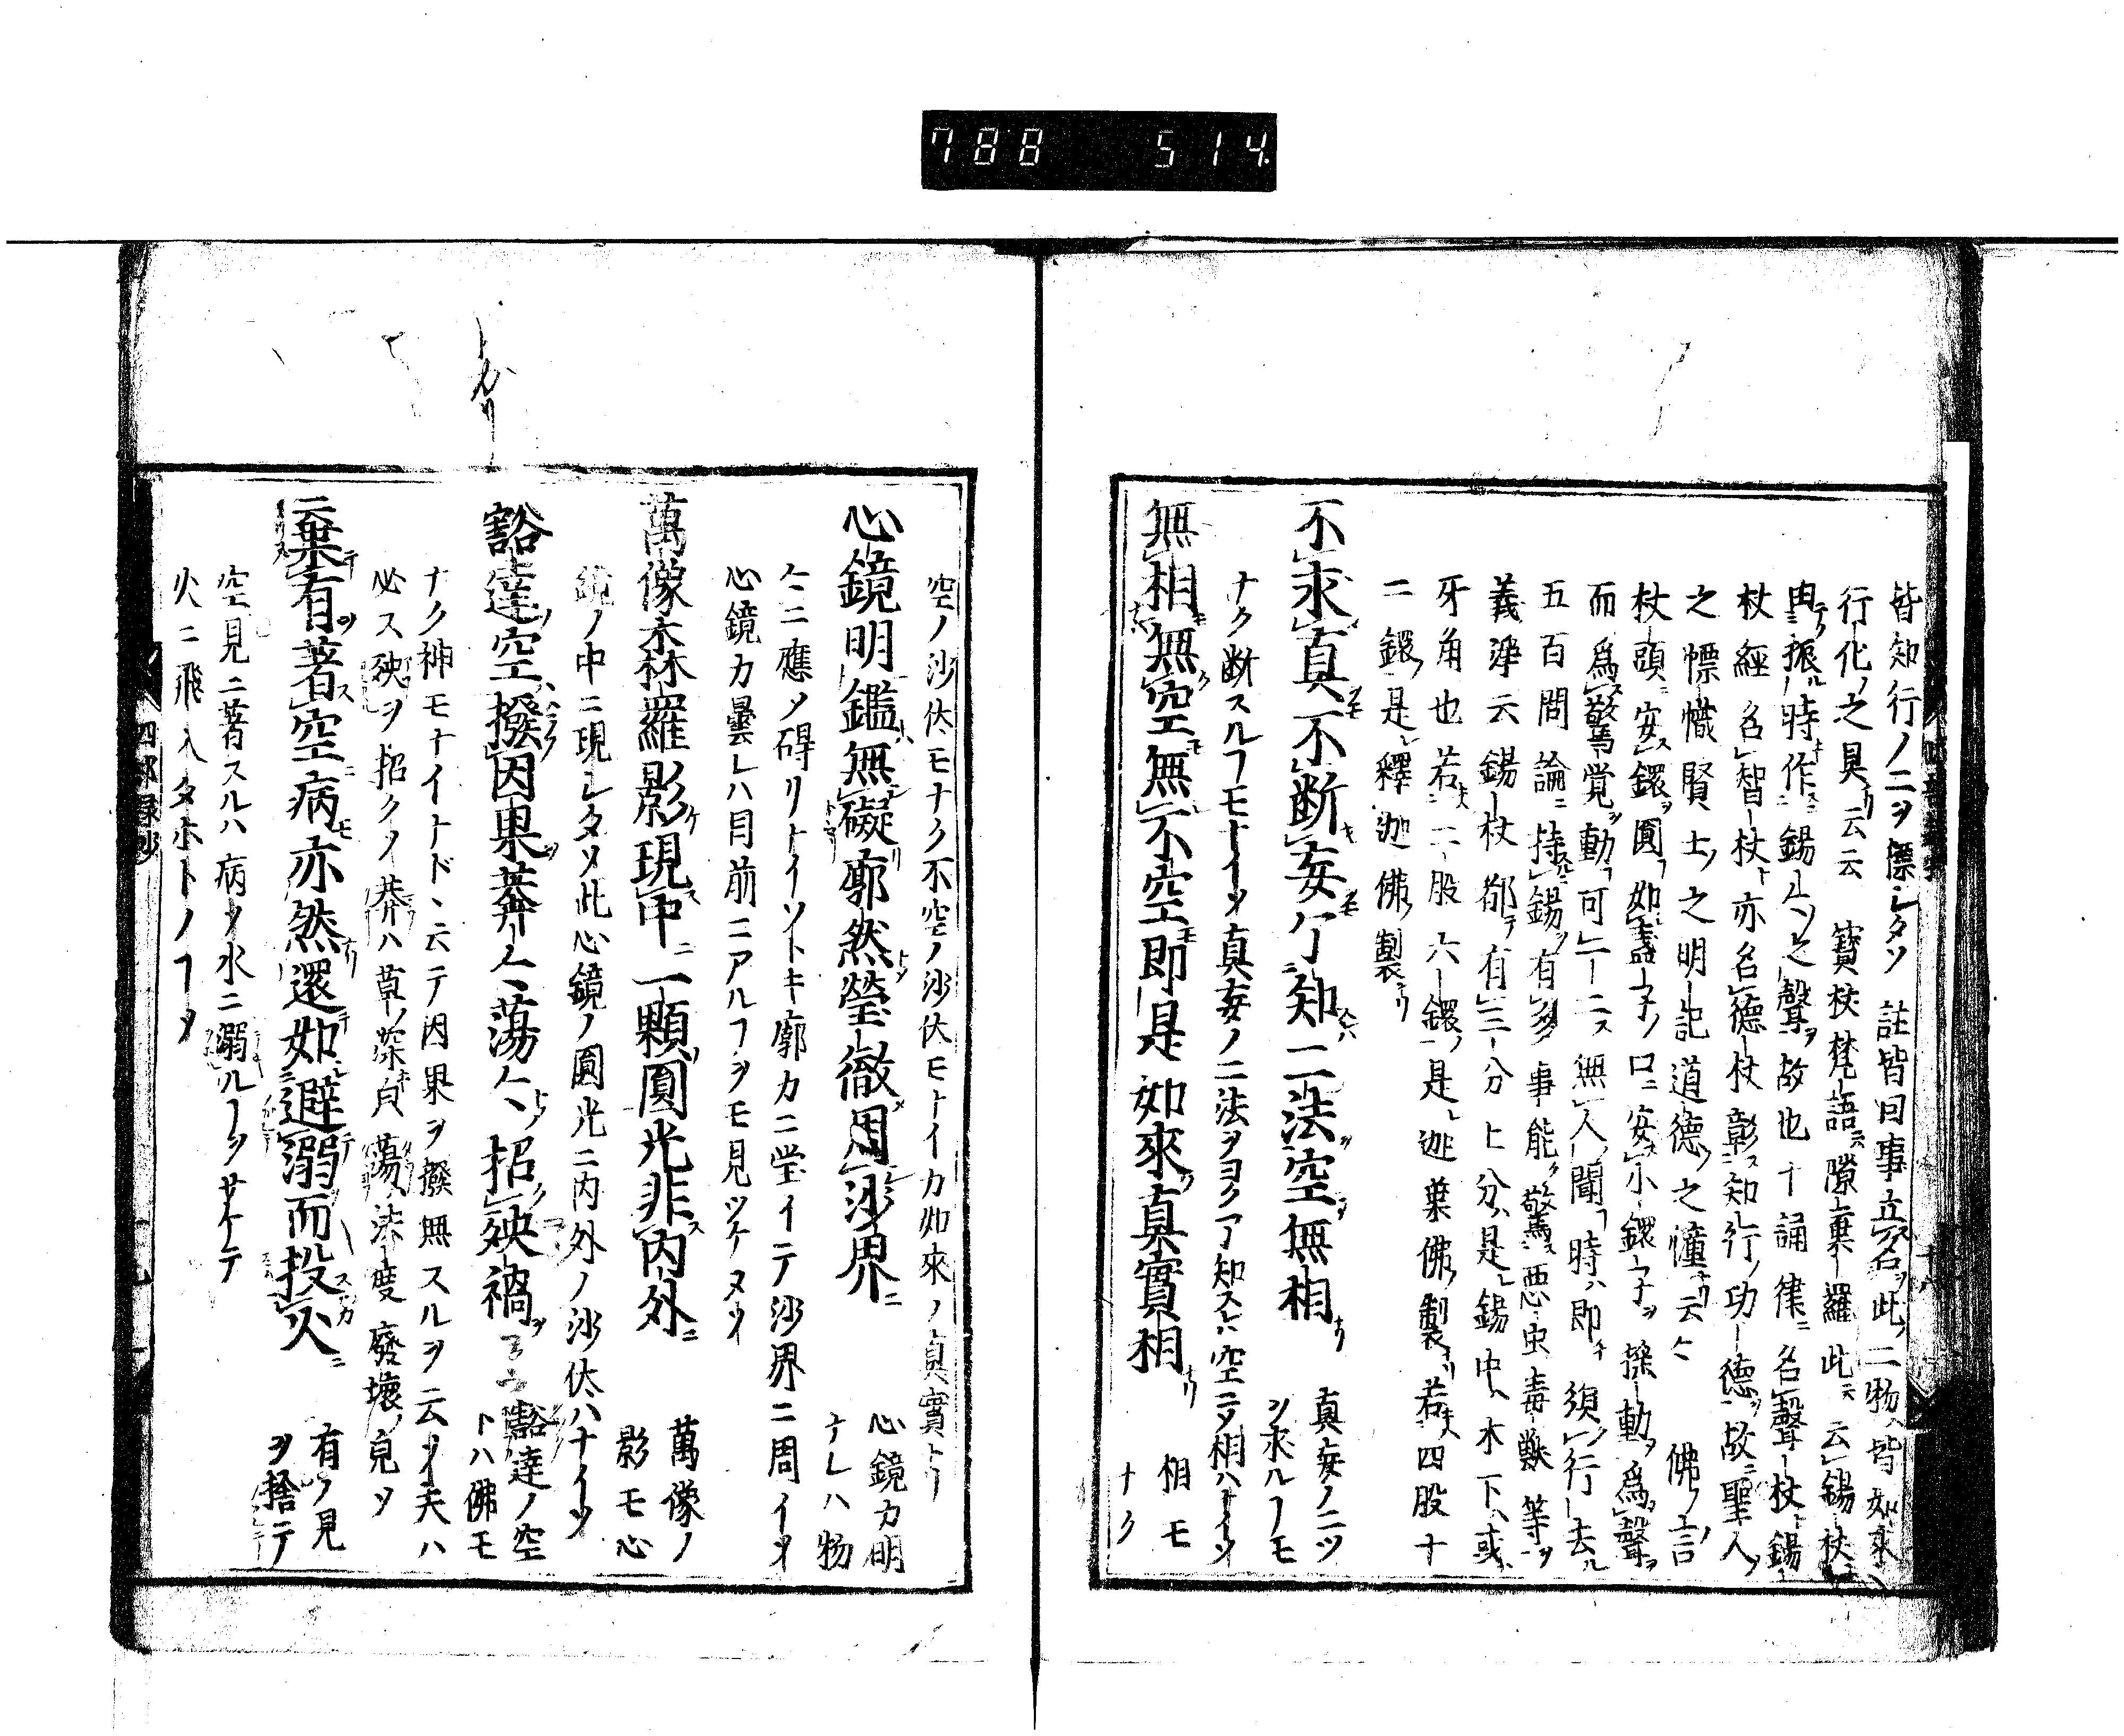 788 514
皆知行ノ二ヲ標シタソ 註皆曰事立名此ノ二物皆如來ノ
行化ノ之具云云 寶杖梵語隙棄羅此云云錫杖
由振時作錫ヽ之聲故也十誦律名聲杖錫
杖經名智杖亦名德杖彰知行功德故聖人
之幖幟賢士之明記道德之憧云〻 佛言
杖頭安鐶圓如盞子口安小鐶子搖動為聲
而為驚覺動可一二無人聞時即須行去
五百問論持錫有多事能驚悪虫毒獸等
義淨云錫杖都有三分上分是錫中木下或
牙角也若二股六鐶是迦葉佛製若四股十
二鐶是釋迦佛製
不求真不断妄了知二法空無相 真妄ノ二ツ
ヲ求ルヿモ
ナク断スルヿモナイソ真妄ノ二法ヲヨクア知スレハ空ニメ相ハナイソ
無相無空無不空即是如來真實相 相モ
ナク
空ノ沙汰モナク不空ノ沙汰モナイカ如來ノ真實ト
心鏡明鑑無礙廓然瑩徹周沙界 心鏡カ明
ナレハ物
〻ニ應メ碍リナイソトキ廓カニ瑩イテ沙界ニ周イソ
心鏡カ曇レハ目前ニアルヿヲモ見ツケヌソ
萬像森羅影現中一顆圓光非内外 萬像ノ
影モ心
鏡ノ中ニ現レタソ此心鏡ノ圓光ニ内外ノ沙汰ハナイソ
豁達空撥因果莽〻蕩〻招殃禍 豁達ノ空
トハ佛モ
ナク神モナイナドヽ云テ因果ヲ撥無スルヲ云ソ夫ハ
必ス殃ヲ招クソ莽ハ草ノ深皃蕩ハ法度廢壞ノ皃ソ
棄有著空病亦然還如避溺而投火 有ノ見
ヲ捨テ
空見ニ著スルハ病ソ水ニ溺ルヿヲサケテ
火ニ飛入タホトノヿソ
四部録抄